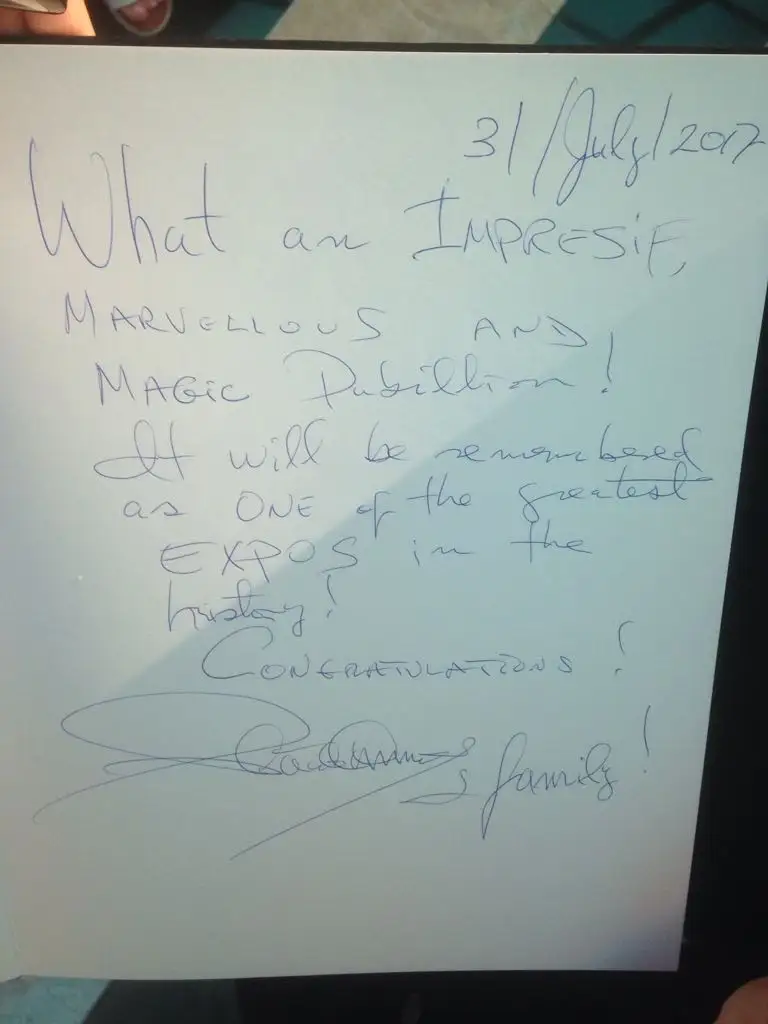 31/July/2017
What an IMPRESiF,
MARVELLOUS AND
MAGiC Pabillion!
It will be remembered
as ONE of the greatest
EXPOS in the
history!
CONGRATULATIONS!
& family!